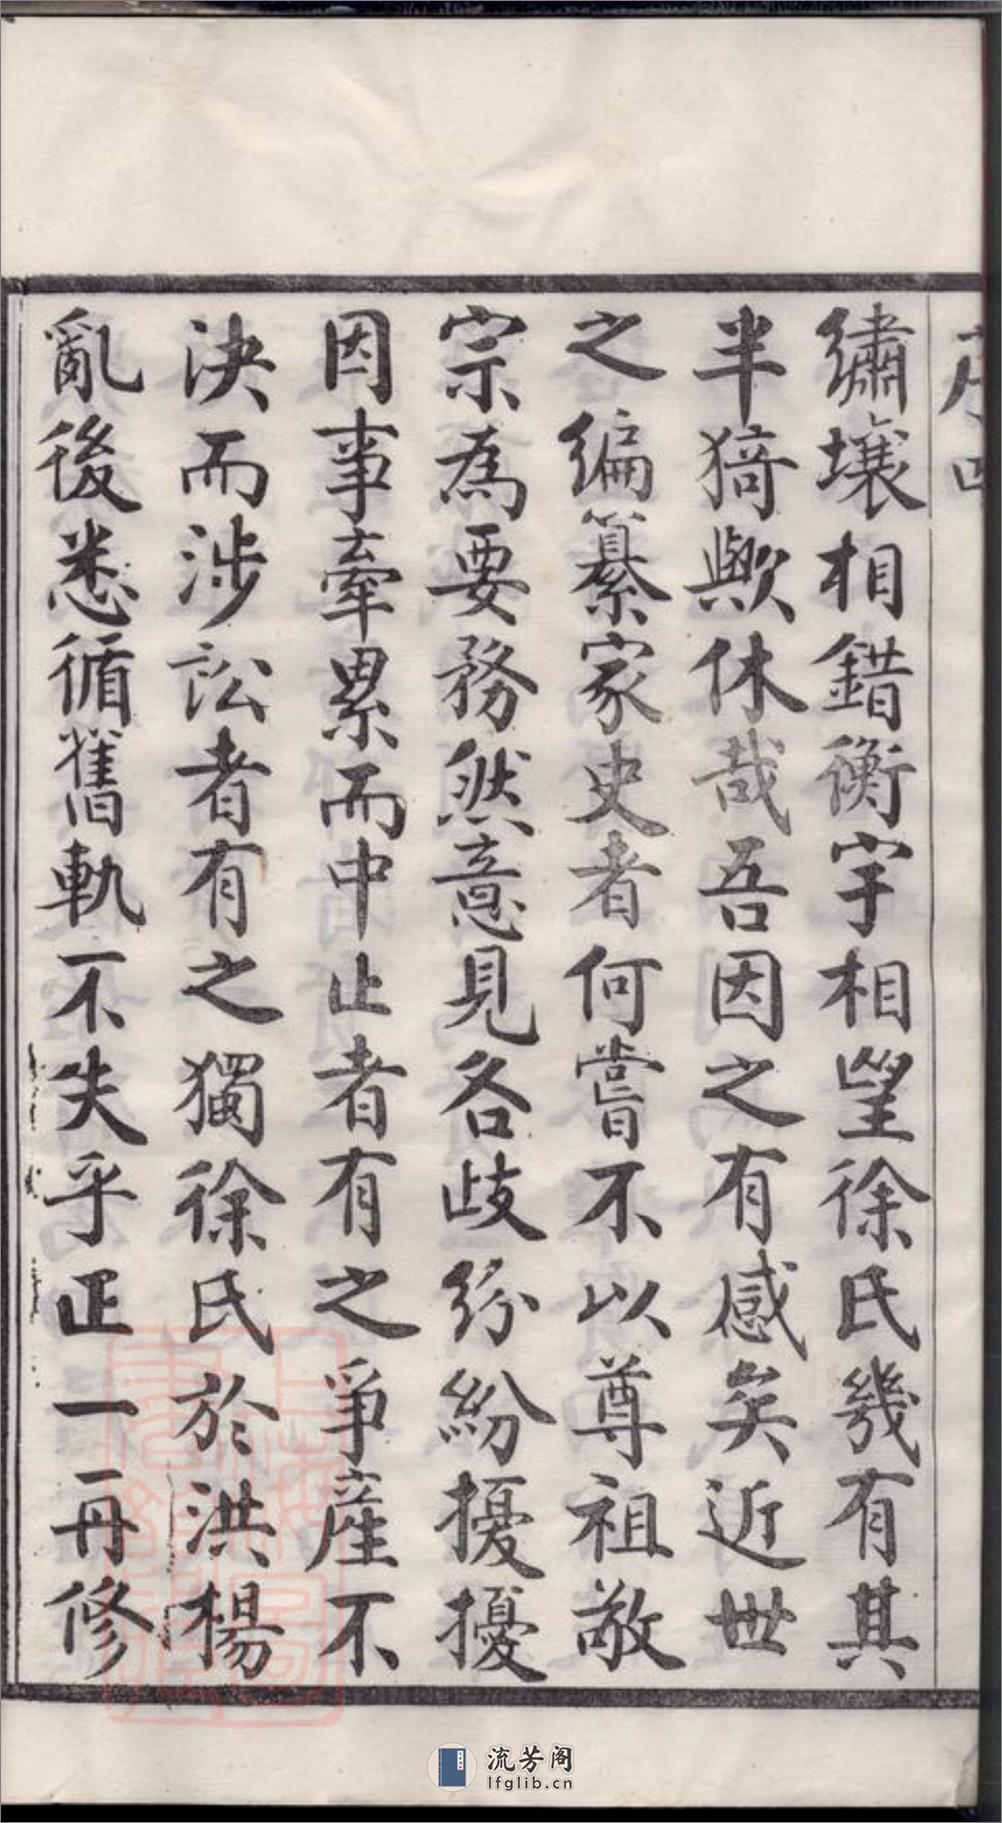 繡壤相錯衡宇相望徐氏幾有其
半猗歟休哉吾因之有感矣近世
之編纂家史者何嘗不以尊祖敬
宗為要務然意見各歧紛紛擾擾
因事牽累而中止者有之爭產不
決而涉訟者有之獨徐氏於洪楊
亂後悉循舊軌不失乎正一再修
流芳阁
lfglib.cn